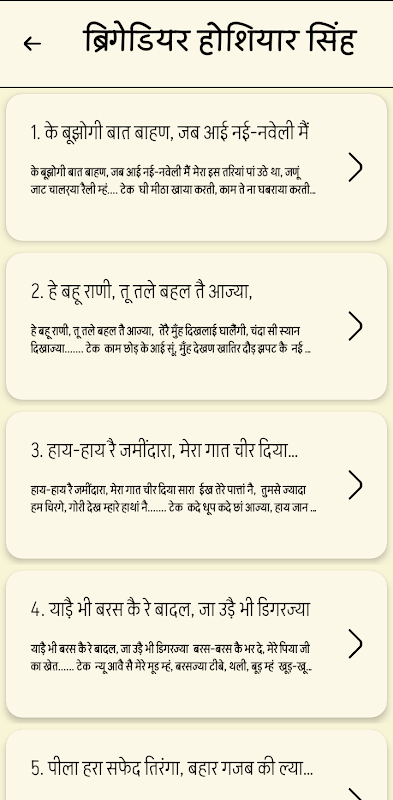 ब्रिगेडियर होशियार सिंह
1. के बूझोगी बात बाहण, जब आई नई-नवेली मैं
के बूझोगी बात बाहण, जब आई नई-नवेली मैं मेरा इस तरियां पां उठे था, जणूं
जाट चालर्‌या रैली म्हं.... टेक घी मीठा खाया करती, काम ते ना घबराया करती...
2. हे बहू राणी, तू तले बहल तै आज्या,
हे बहू राणी, तू तले बहल तै आज्या, तेरै मुँह दिखलाई घालैंगी, चंदा सी स्यान
दिखाज्या....... टेक काम छोड़ के आई सूं, मुँह देखण खातिर दौड़ झपट कै नई ...
3. हाय-हाय रै जमींदारा, मेरा गात चीर दिया...
हाय-हाय रै जमींदारा, मेरा गात चीर दिया सारा ईख तेरे पात्तां नै, तुमसे ज्यादा
हम चिरगे, गोरी देख म्हारे हाथां नै....... टेक कदे धूप कदे छां आज्या, हाय जान ...
4. याड़ै भी बरस कै रे बादल, जा उड़ै भी डिगरज्या
याड़ै भी बरस कै रे बादल, जा उड़ै भी डिगरज्या बरस-बरस कै भर दे, मेरे पिया जी
का खेत...... टेक न्यू आवै सै मेरे मूड म्हं, बरसज्या टीबे, थली, बूड़ म्हं खूड़-खू...
5. पीला हरा सफेद तिरंगा, बहार गजब की ल्या...